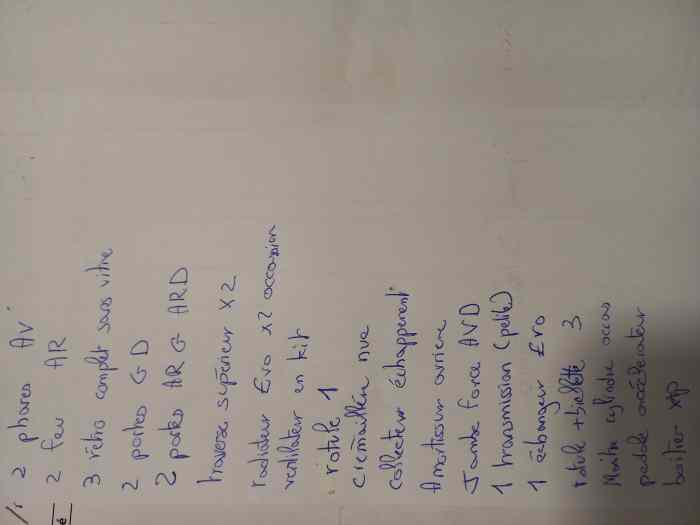 2 phares AV
2 feu AR
3 rétro complet sans vitre
2 portes G D
2 portes AR G AR D
traverse supérieur x2
radiateur Evo x2 occasion
ventilateur en kit
rotule 1
crémaillère nue
collecteur échappement
Amortisseur arrière
Jambe force AVD
1 transmission (petite)
1 échangeur Evo
rotule + biellette 3
Maitre cylindre occas
pedale accélérateur
boitier xtp
é